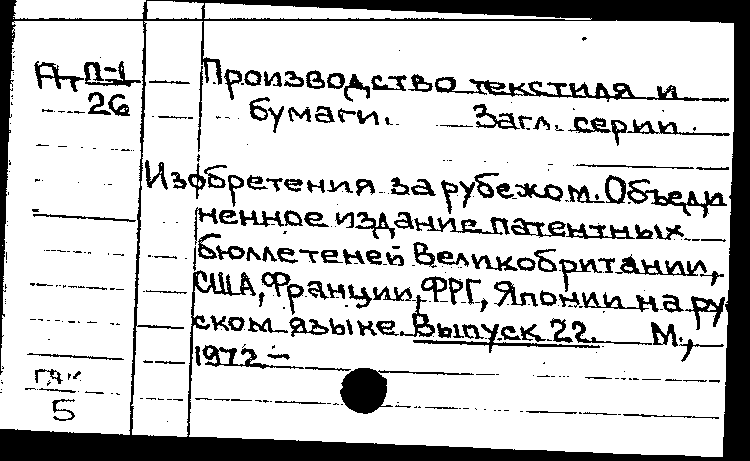 П-1
26
Производство текстиля и
бумаги. Загл. серии.
Изобретения за рубежом. Объеди
ненное издание патентных
бюллетеней Великобритании,
США, Франции, ФРГ, Японии на ру
ском языке. Выпуск 22. М.,
1972.-
5